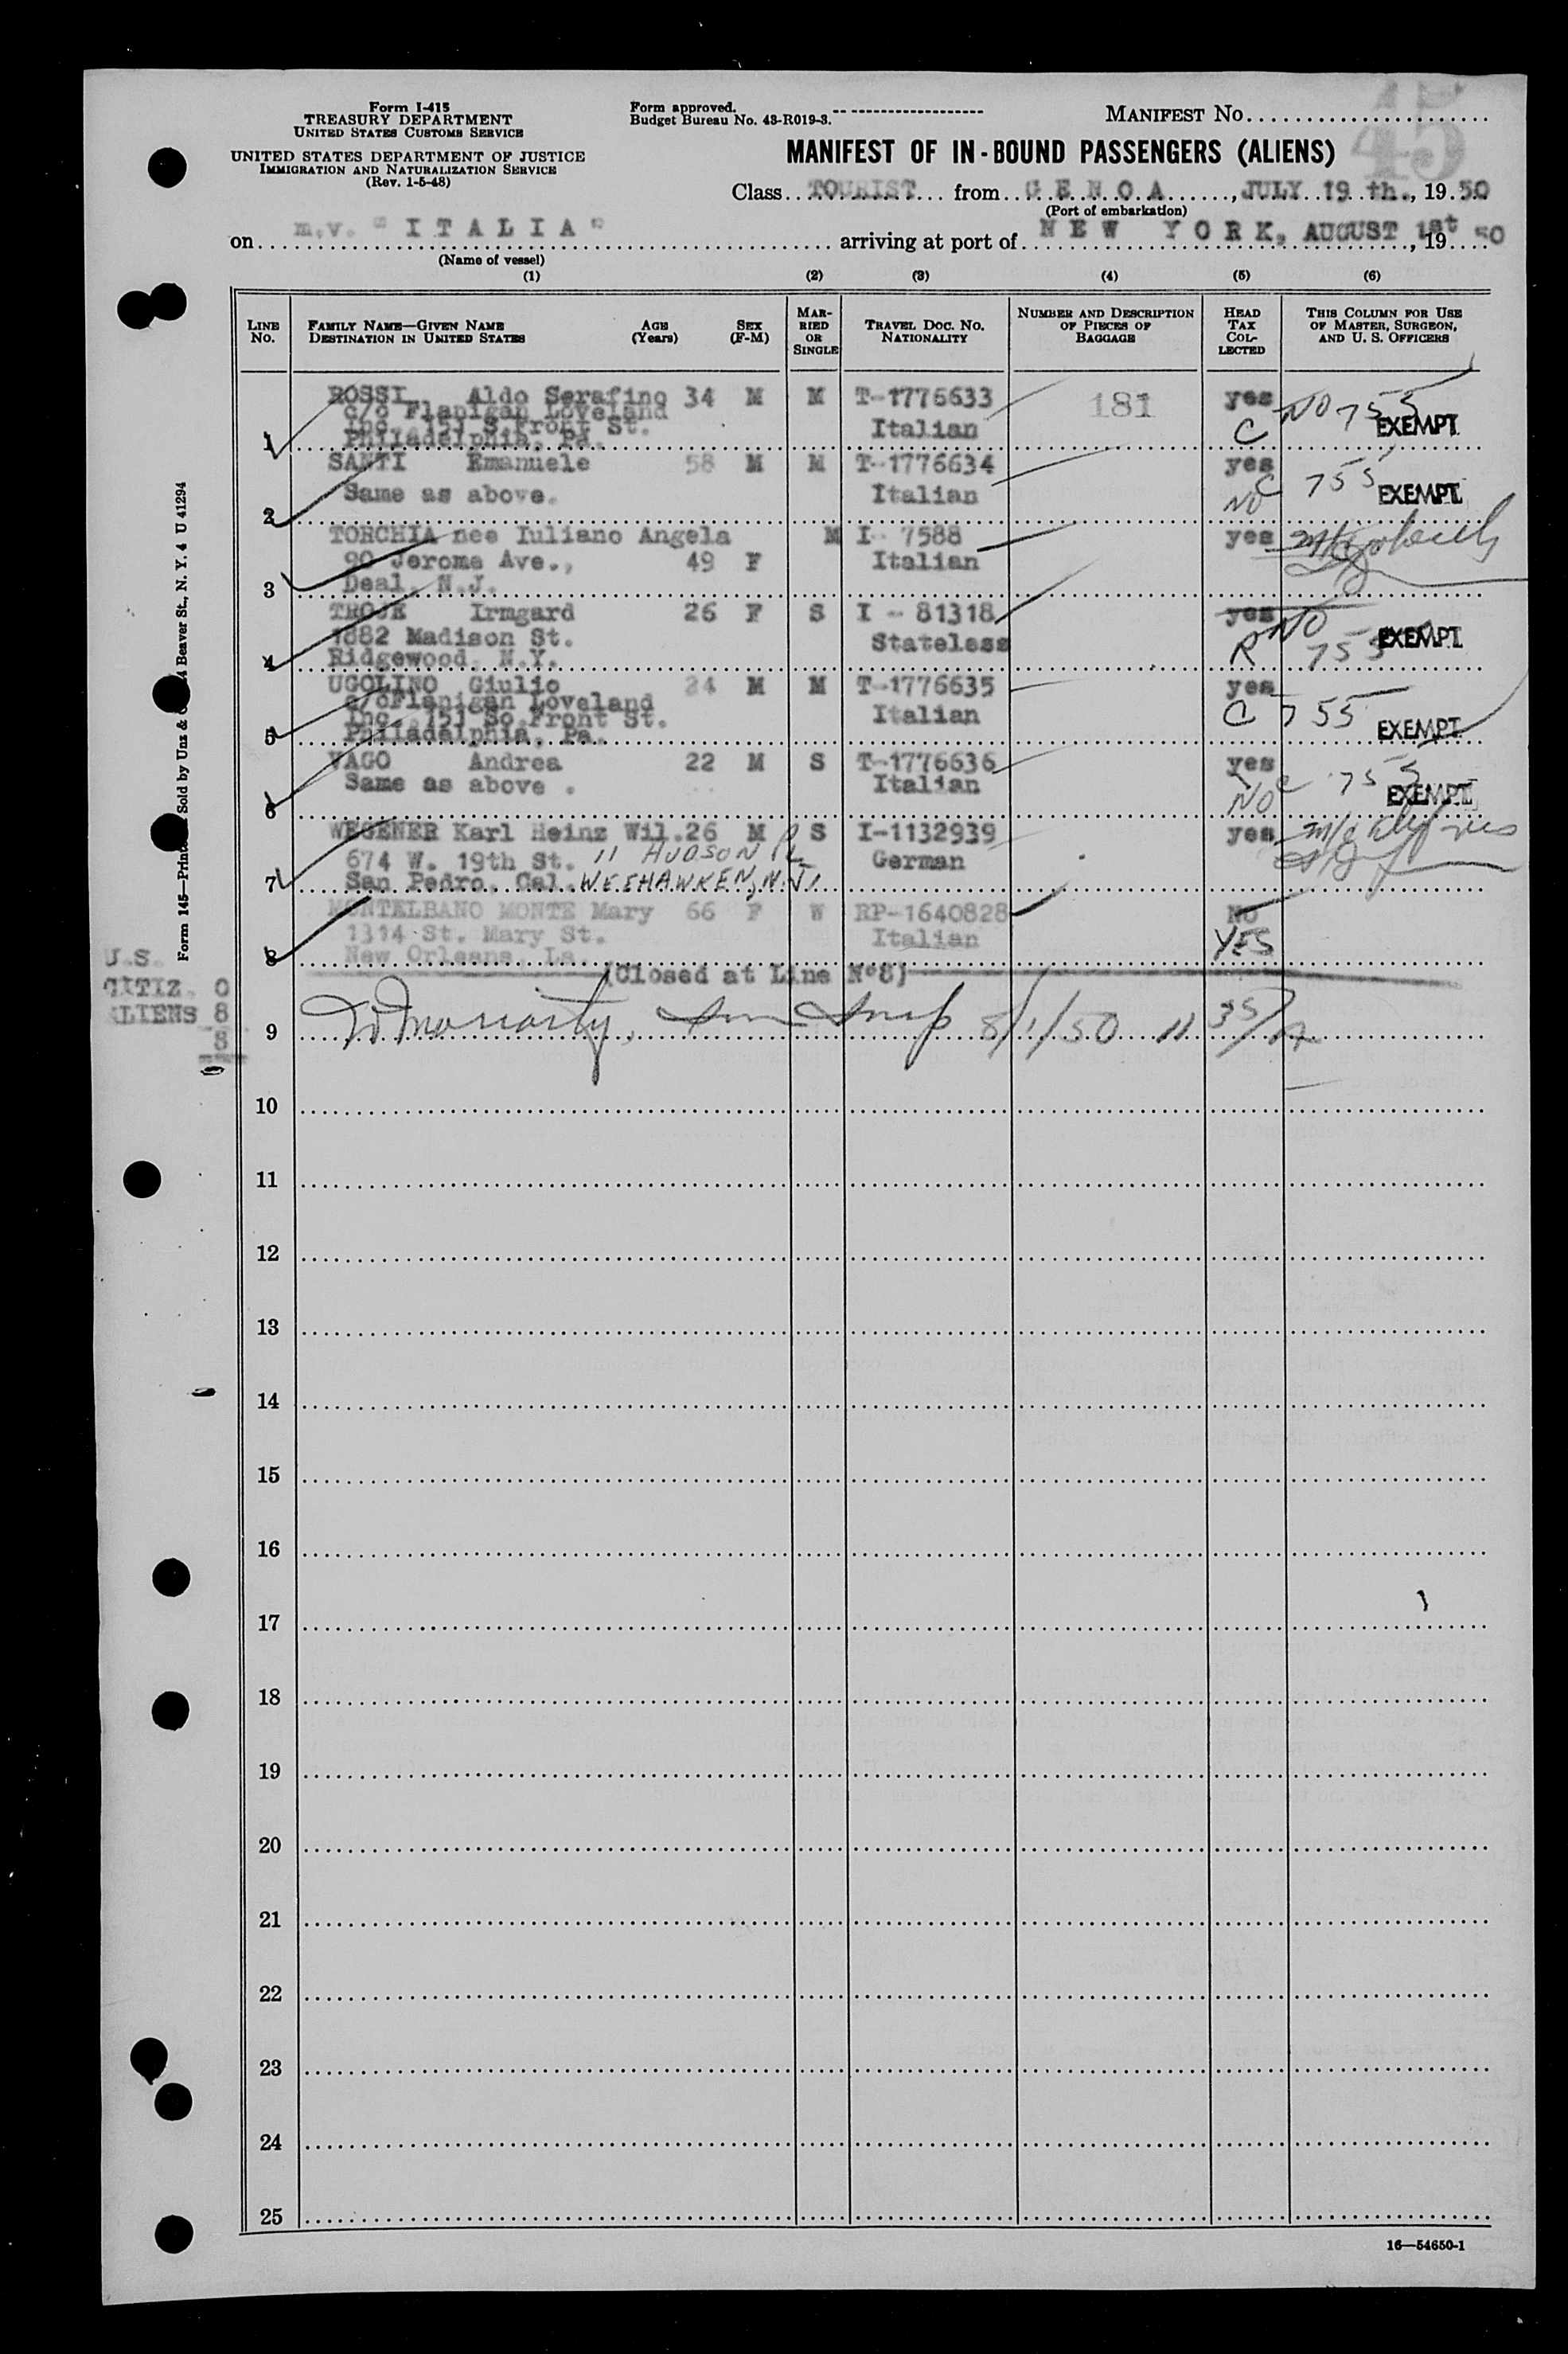 Form I-415
TREASURY DEPARTMENT
UNITED STATES CUSTOMS SERVICE
UNITED STATES DEPARTMENT OF JUSTICE
IMMIGRATION AND NATURALIZATION SERVICE
(Rev. 1-5-48)
Form approved.
Budget Bureau No. 43-R019-3.
MANIFEST NO.
45
MANIFEST OF IN-BOUND PASSENGERS (ALIENS)
Class TOURIST from G E N O A, JULY 19 th., 19 50
(Port of embarkation)
on m.v. "I T A L I A" arriving at port of N E W Y O R K, AUGUST 1st, 19 50
(Name of vessel)
(1) (2) (3) (4) (5) (6)
LINE NO. FAMILY NAME—GIVEN NAME DESTINATION IN UNITED STATES AGE (Years) SEX (F-M) MARRIED OR SINGLE TRAVEL DOC. NO. NATIONALITY NUMBER AND DESCRIPTION OF PIECES OF BAGGAGE HEAD TAX COLLECTED THIS COLUMN FOR USE OF MASTER, SURGEON, AND U. S. OFFICERS
ROSSI Aldo Serafino 34 M M T-1776633 181 yes NO 755
c/o Flanigan Loveland
Inc. 151 S.Front St. Italian C EXEMPT
1 Philadelphia, Pa.
SANTI Emanuele 58 M M T-1776634 yes
Same as above. Italian NO C 755 EXEMPT
2
TORCHIA nee Iuliano Angela M I- 7588 yes
90 Jerome Ave., 49 F Italian
3 Deal, N.J.
TROJE Irmgard 26 F S I - 81318 yes NO
1882 Madison St. Stateless R 755 EXEMPT
4 Ridgewood, N.Y.
UGOLINO Giulio 24 M M T-1776635 yes
c/oFlanigan Loveland
Inc. 151 So.Front St. Italian C 755 EXEMPT
5 Philadelphia, Pa.
VAGO Andrea 22 M S T-1776636 yes
Same as above . Italian NO C 755 EXEMPT
6
WEGENER Karl Heinz Wil. 26 M S I-1132939 yes
674 W. 19th St. 11 HUDSON PL German
7 San Pedro, Cal. WEEHAWKEN, N.J.
MONTELBANO MONTE Mary 66 F W RP-1640828 NO
1314 St. Mary St. Italian YES
8 New Orleans, La.
(Closed at Line N°8)
U.S.
CITIZ. 0
ALIENS 8
8
9 Moriarty, 8/1/50 11 35/
10
11
12
13
14
15
16
17
18
19
20
21
22
23
24
25
16—54650-1
Beaver St., N. Y. 4 U 41294
Sold by Unz &
Form 145—